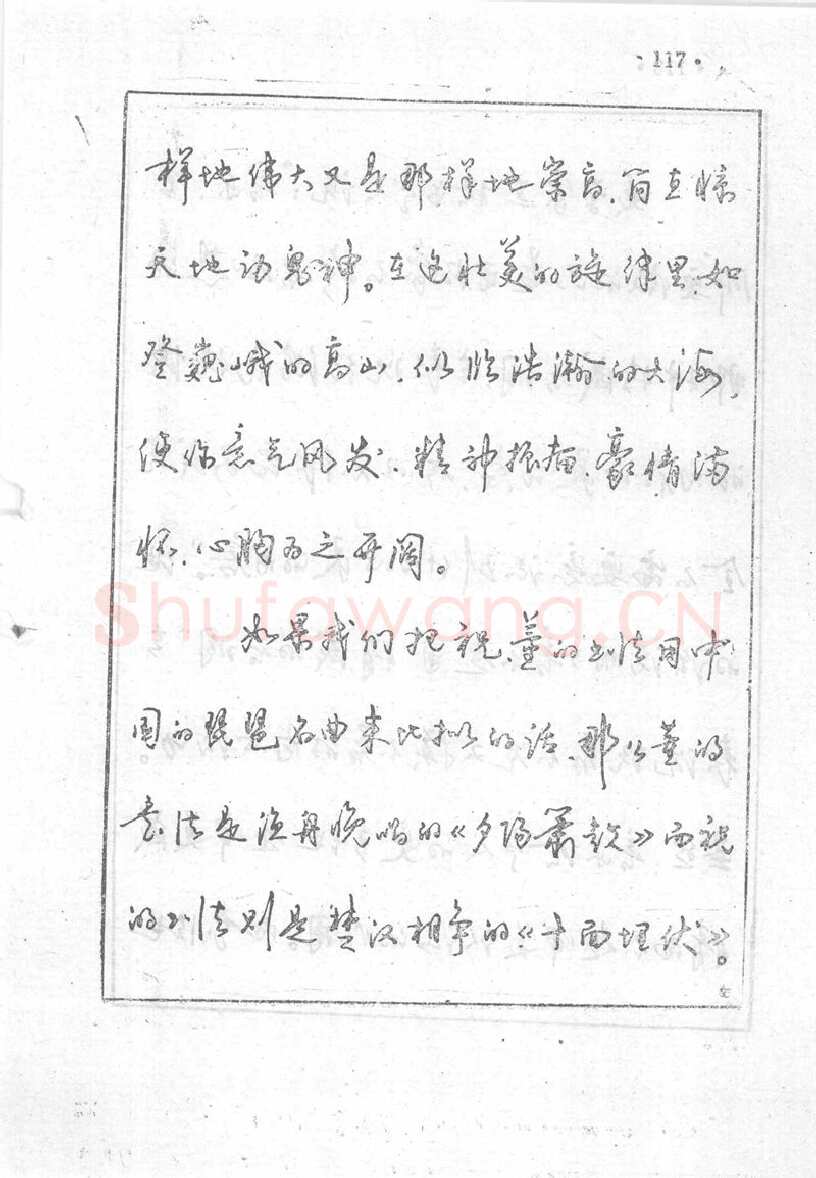 ·117·
样地伟大又是那样地崇高,简直惊
天地动鬼神。在这壮美的旋律里,如
登巍峨的高山,似临浩瀚的大海,
使你意气风发、精神振奋,豪情满
怀,心胸为之开阔。
如果我们把祝、董的书法用中
国的琵琶名曲来比拟的话,那么董的
书法是渔舟晚唱的《夕阳箫鼓》而祝
的书法则是楚汉相争的《十面埋伏》。
Shufawang.CN